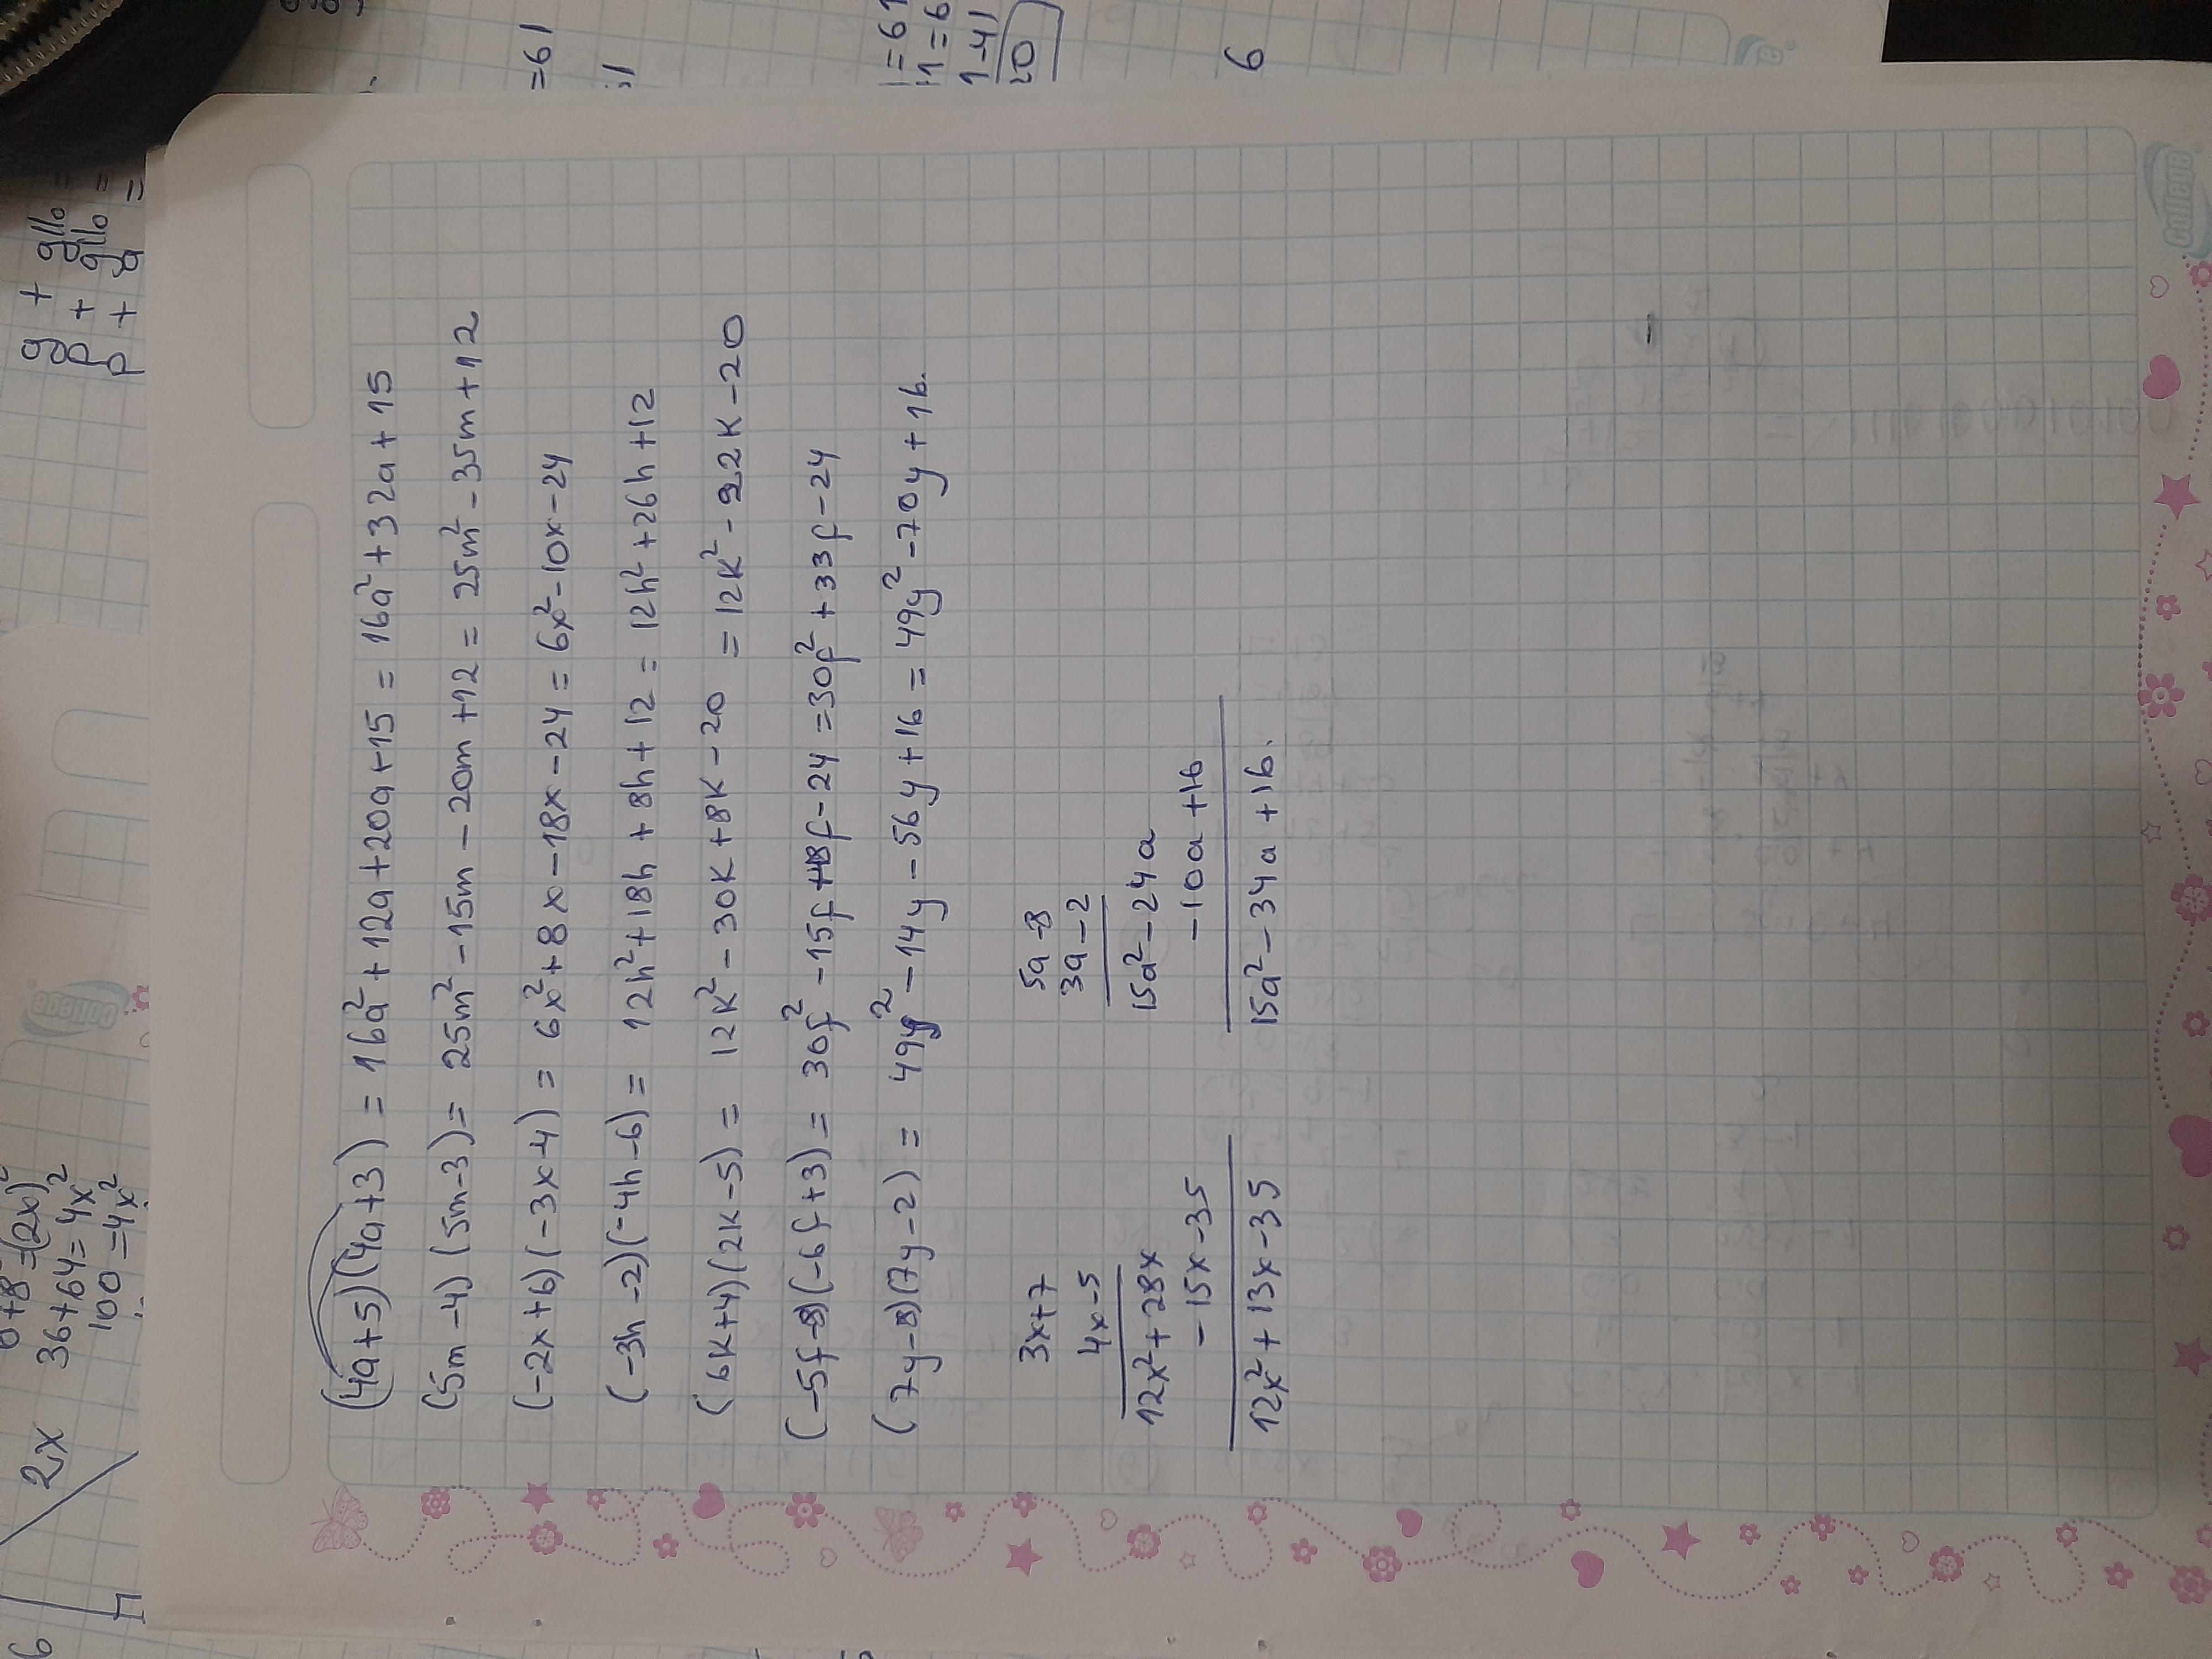 (4a+5)(4a+3) = 16a²+12a+20a+15 = 16a²+32a+15
(5m-4)(5m-3) = 25m²-15m-20m+12 = 25m²-35m+12
(-2x+6)(-3x-4) = 6x²+8x-18x-24 = 6x²-10x-24
(-3h-2)(-4h-6) = 12h²+18h+8h+12 = 12h²+26h+12
(6k+4)(2k-5) = 12k²-30k+8k-20 = 12k²-22k-20
(-5f-8)(-6f+3) = 30f²-15f+48f-24 = 30f²+33f-24
(7y-8)(7y-2) = 49y²-14y-56y+16 = 49y²-70y+16.
3x+7
4x-5
12x²+28x
-15x-35
12x²+13x-35
5a-8
3a-2
15a²-24a
-10a+16
15a²-34a+16.
College
College
2x
36+64=4x²
100=4x²
=61
6